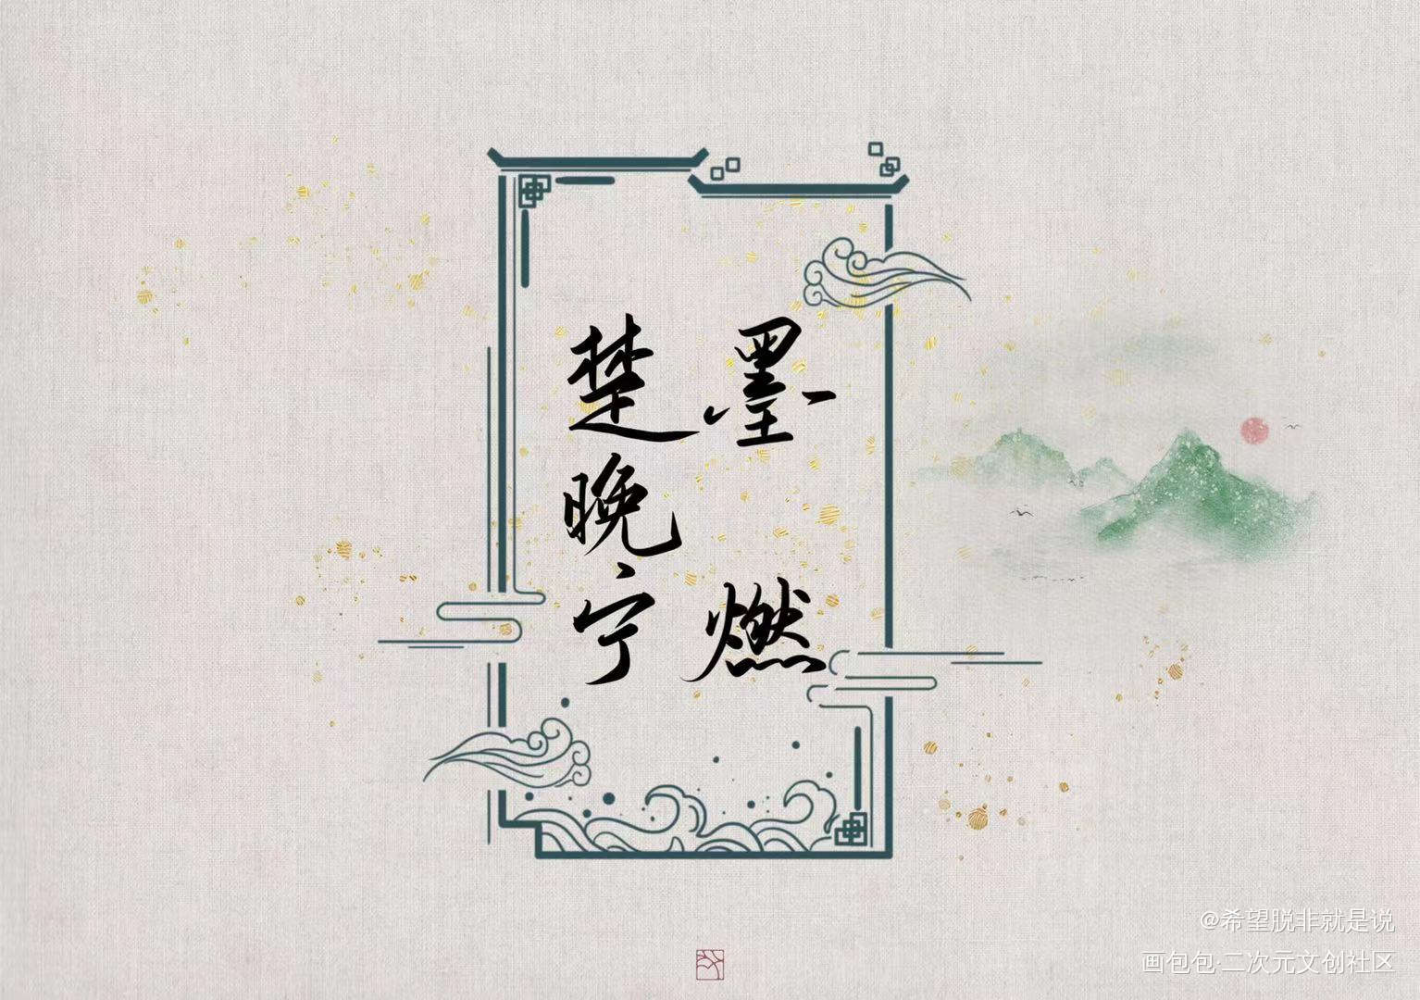 墨燃
楚晚宁
@希望脱非就是说
画包包·二次元文创社区